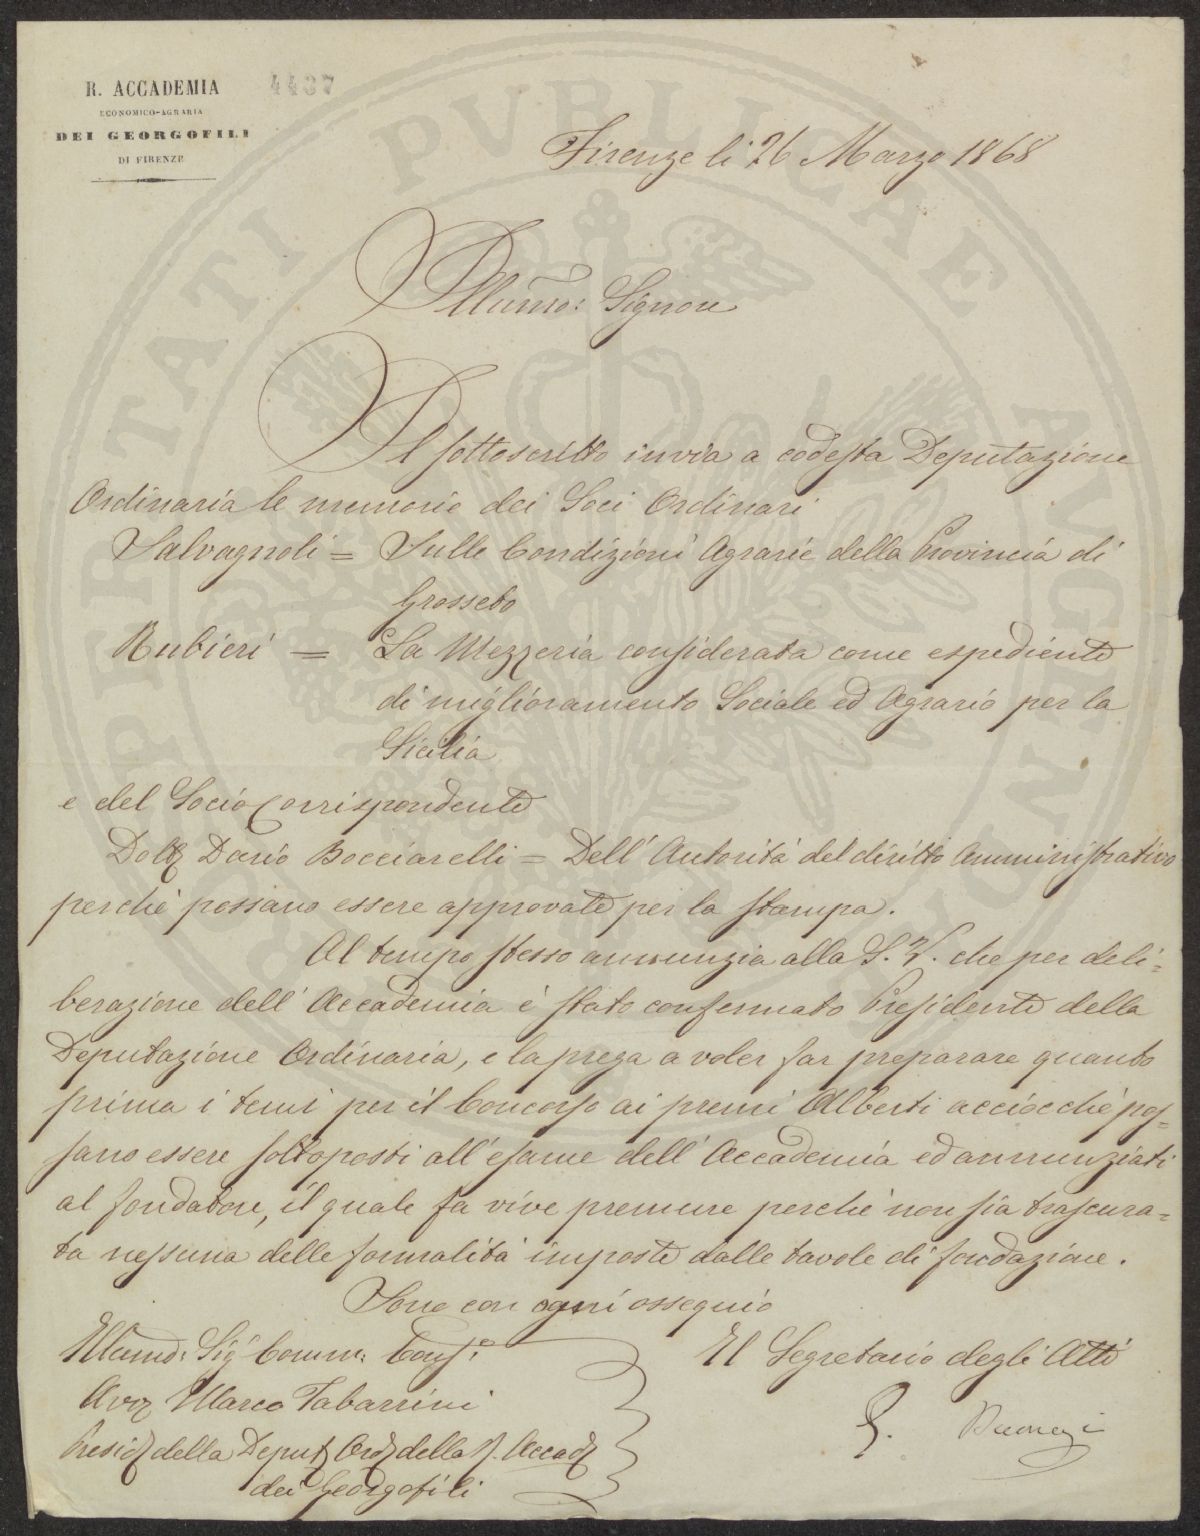 R. ACCADEMIA
ECONOMICO-AGRARIA
DEI GEORGOFILI
DI FIRENZE
4437
Firenze li 26 Marzo 1868
Illumo: Signore
Il sottoscritto invia a codesta Deputazione
Ordinaria le memorie dei Soci Ordinari
Salvagnoli = Sulle Condizioni Agrarie della Provincia di
Grosseto
Rubieri = La Mezzeria considerata come espediente
di miglioramento Sociale ed Agrario per la
Sicilia
e del Socio Corrispondente
Dott Dario Bocciarelli = Dell' Autorità del diritto Amministrativo
perchè possano essere approvate per la stampa.
Al tempo stesso annunzia alla S. V. che per deli=
berazione dell' Accademia è stato confermato Presidente della
Deputazione Ordinaria, e la prega a voler far preparare quanto
prima i temi per il Concorso ai premi Alberti acciocchè pos=
sano essere sottoposti all' esame dell' Accademia ed annunziati
al fondatore, il quale fa vive premure perchè non sia trascura=
ta nessuna delle formalità imposte dalle tavole di fondazione.
Sono con ogni ossequio
Illumo: Sigr Comm: Consre
Il Segretario degli Atti
Avv Marco Tabarrini
Presid della Deput Ord della R. Accad
dei Georgofili
PROSPERITATI PVBLICAE AVGENDAE